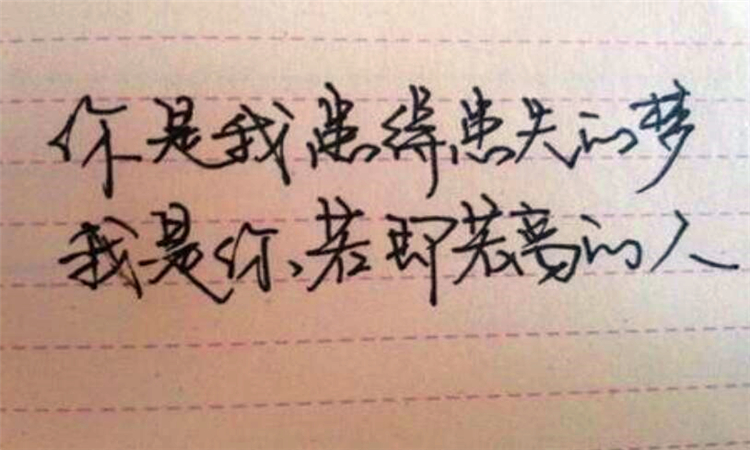 你是我患得患失的梦
我是你、若即若离的人